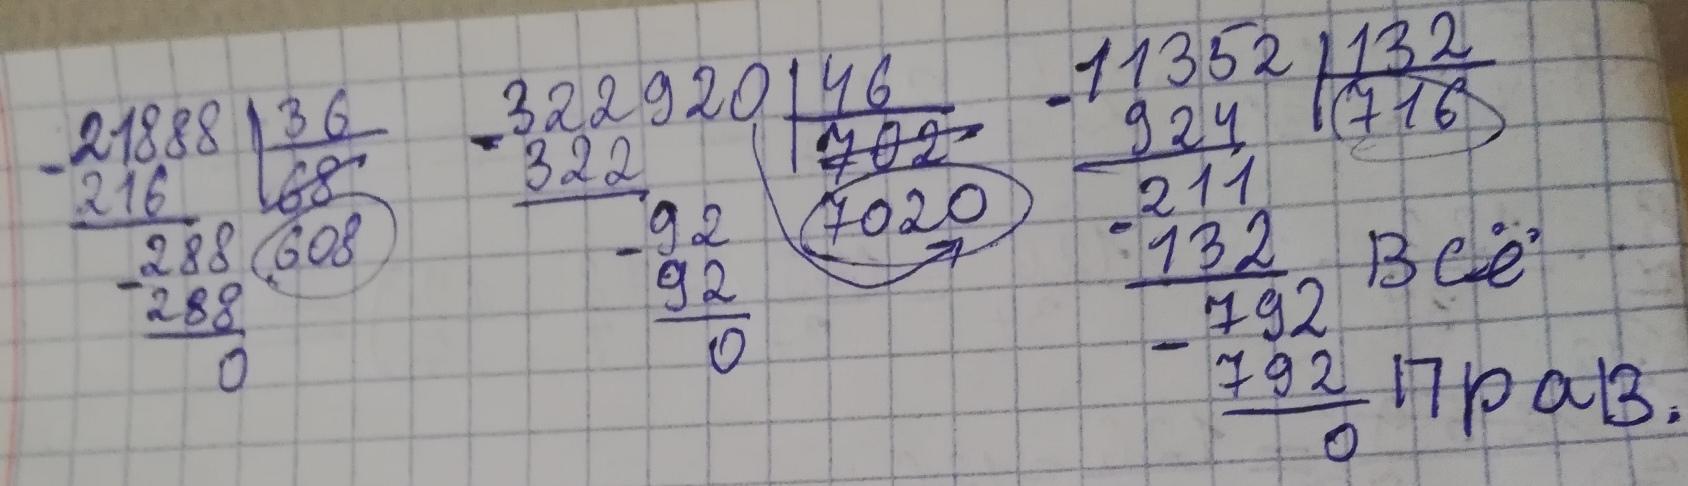 21888 | 36
- 216 68
288 608
- 288
0
322920 | 46
- 322 702
92 7020
- 92
0
11352 | 132
- 924 716
211
- 132
792
- 792
0
Всё
прав.